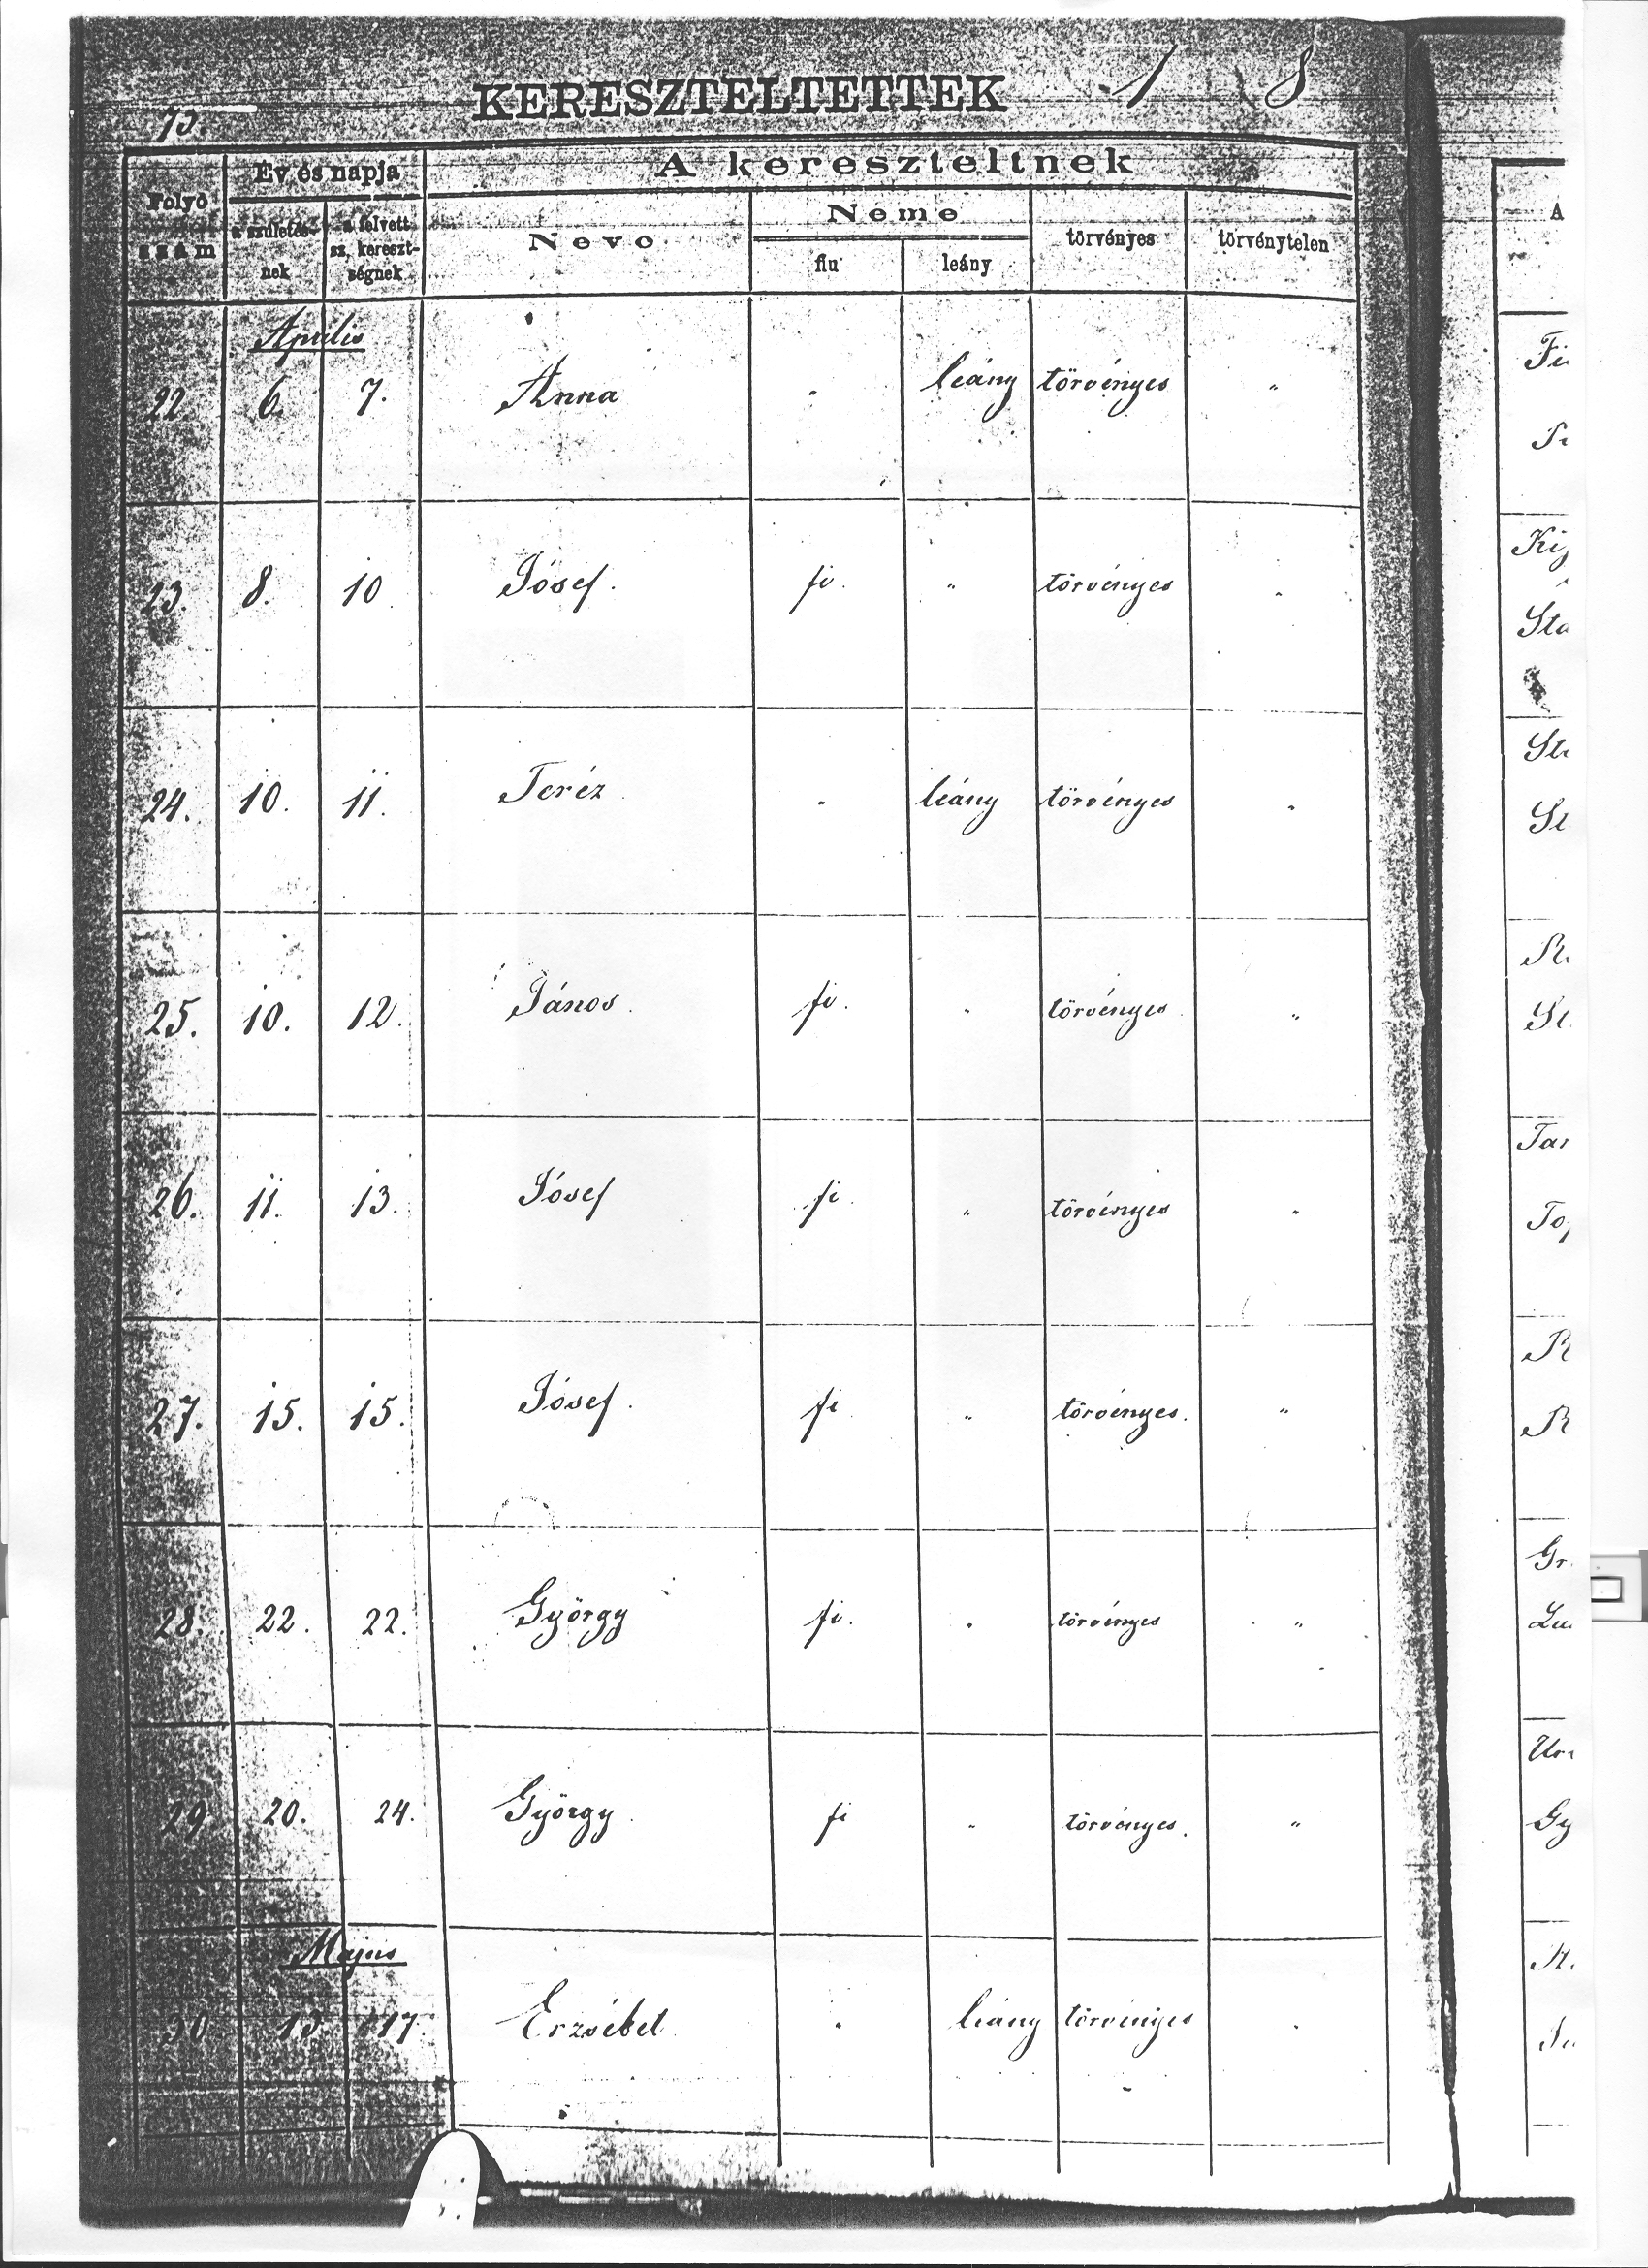 KERESZTELTETTEK 1 8
Folyó szám
Év és napja
a születés-
nek
a felvett
sz. kereszt-
ségnek
A kereszteltnek
Neve
Neme
fiu
leány
törvényes
törvénytelen
A
Április
22. 6. 7. Anna " leány törvényes "
23. 8. 10. Jósef. fi. " törvényes "
24. 10. 11. Teréz " leány törvényes "
25. 10. 12. János. fi. " törvényes "
26. 11. 13. Jósef fi. " törvényes "
27. 15. 15. Jósef. fi " törvényes. "
28. 22. 22. György fi. " törvényes "
29 20. 24. György. fi " törvényes. "
Majus
30 17 Erzsébet " leány törvényes "